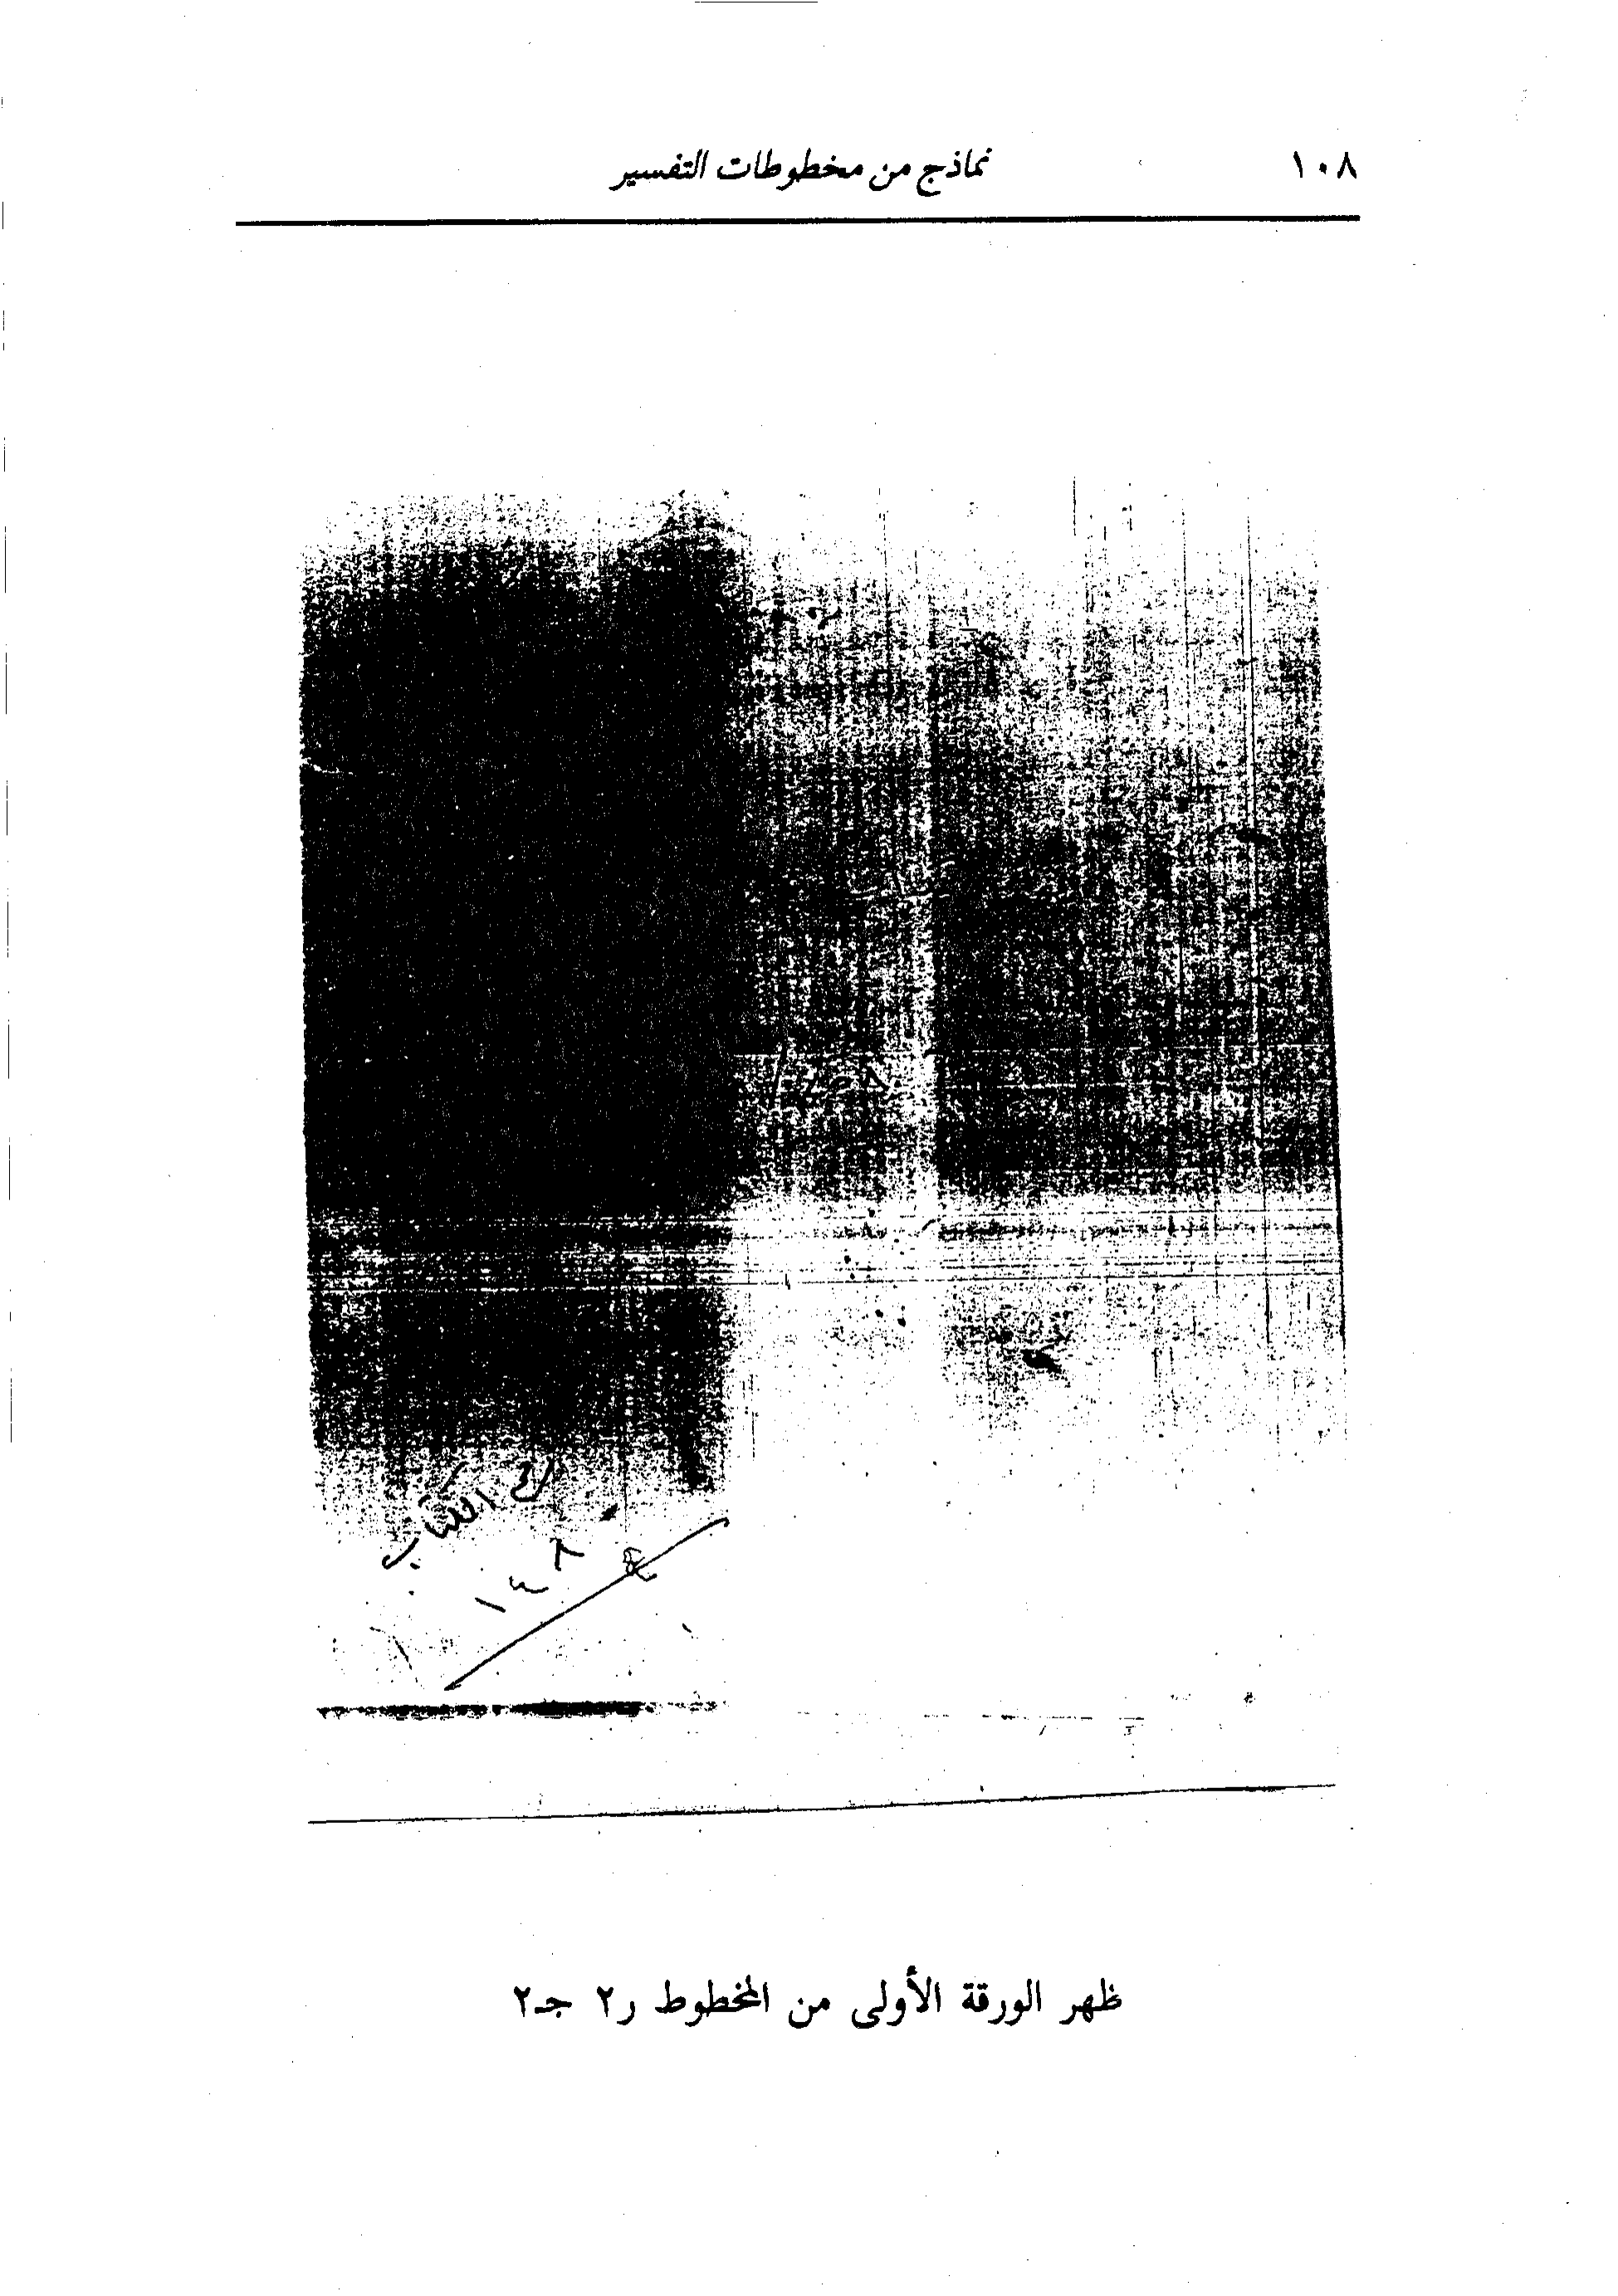 ١٠٨
نماذج من مخطوطات التفسير
ظهر الورقة الأولى من المخطوط ر٢ جـ٢